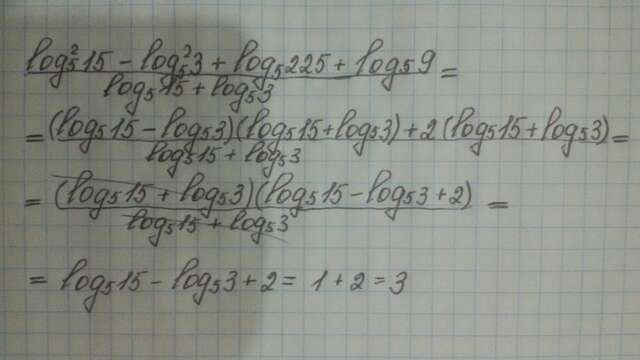 log₅²15 − log₅²3 + log₅225 + log₅9 =
log₅15 + log₅3
= (log₅15 − log₅3)(log₅15 + log₅3) + 2(log₅15 + log₅3) =
log₅15 + log₅3
= (log₅15 + log₅3)(log₅15 − log₅3 + 2) =
log₅15 + log₅3
= log₅15 − log₅3 + 2 = 1 + 2 = 3